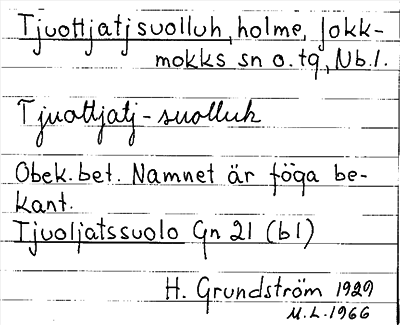 Tjuottjatjsuolluh, holme, Jokk-
mokks sn o. tg, Nb.l.
Tjuottjatj-suolluh
Obek. bet. Namnet är föga be-
kant.
Tjuoljatssuolo Gn 21 (bl)
H. Grundström 1929
M.L. 1966